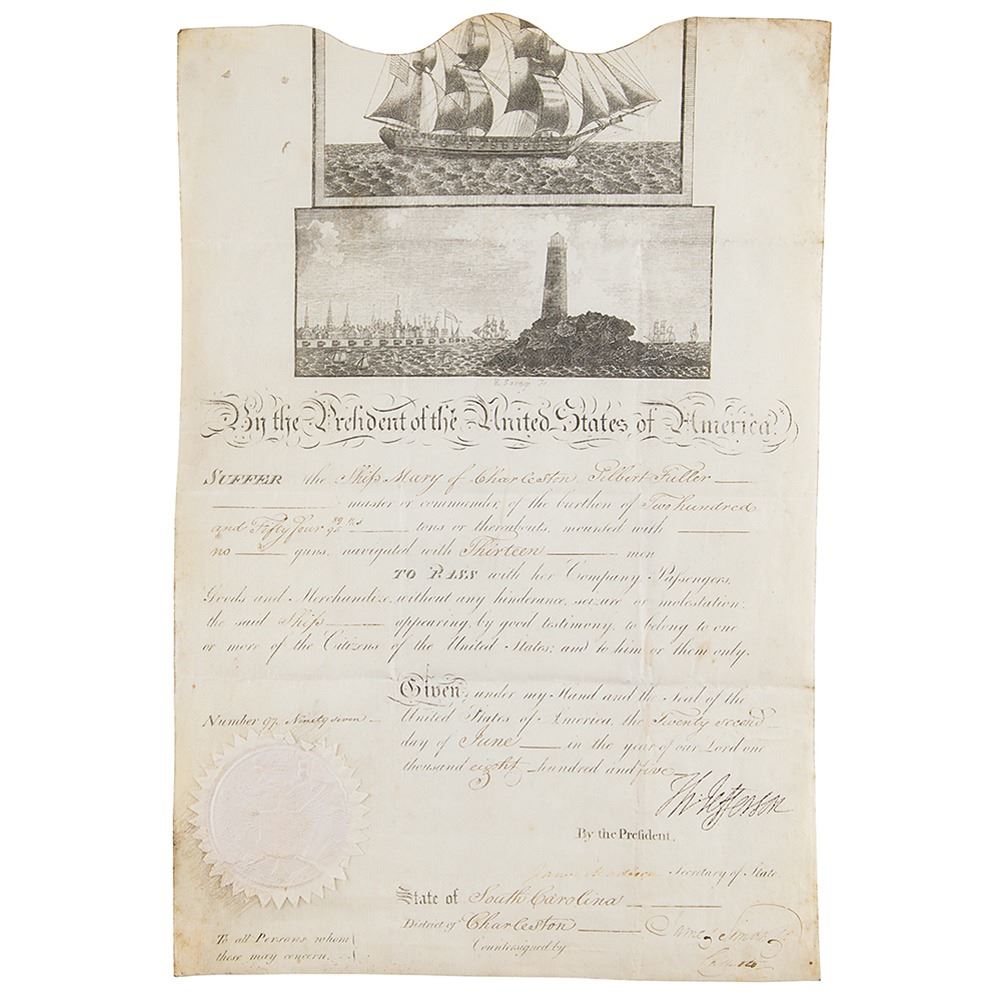 By the President of the United States of America.
SUFFER the Ship Mary of Charleston Silbert Fuller
master or commander, of the burthen of Two hundred
and Fifty four tons or thereabouts, mounted with
no guns, navigated with Thirteen men
TO PASS with her Company, Passengers,
Goods and Merchandize, without any hinderance, seizure or molestation;
the said Ship appearing, by good testimony, to belong to one
or more of the Citizens of the United States; and to him or them only.
Given, under my Hand and the Seal of the
United States of America, the Twenty second
day of June in the year of our Lord one
thousand eight hundred and five
Number 97. Ninety seven
Th: Jefferson
By the President,
James Madison Secretary of State
State of South Carolina
District of Charleston James Simons
Countersigned by
To all Persons whom
these may concern.